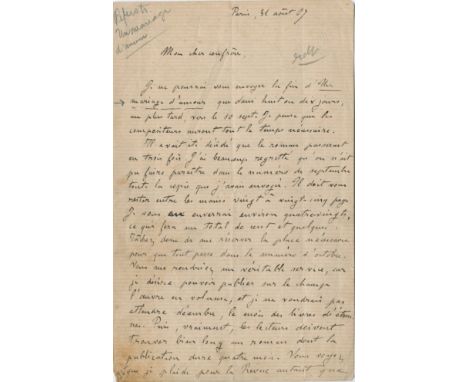 Un mariage
d'amour
Paris, 31 août 97
Mon cher confrère,
Je ne pourrai vous envoyer la fin d'Un
mariage d'amour que dans huit ou dix jours,
au plus tard, vers le 10 sept. Je pense que les
compositeurs auront tout le temps nécessaire.
Il avait été décidé que le roman passerait
en trois fois. J'ai beaucoup regretté qu'on n'ait
pu faire paraître dans le numéro de septembre
toute la copie que j'avais envoyée. Il doit vous
rester entre les mains vingt à vingt-cinq pages.
Je vous en enverrai environ quatre-vingts,
ce qui fera un total de cent et quelques.
Tâchez donc de me réserver la place nécessaire
pour que tout passe dans le numéro d'octobre.
Vous me rendriez un véritable service, car
je désire pouvoir publier sur le champ
l'œuvre en volume, et je ne voudrais pas
attendre décembre, le mois des livres d'étren-
nes. Puis, vraiment, les lecteurs doivent
trouver bien long un roman dont la
publication dure quatre mois. Vous voyez
que je plaide pour la Revue autant que